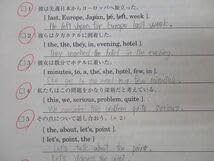 彼は先週日本からヨーロッパへ旅立った。
[ last, Europe, Japan, he, left, week ]
He left Japan for Europe last week.
彼らは夕方ホテルに到着した。
[ the, the, they, in, evening, hotel ]
They reached the hotel in the evening.
彼女は数分でホテルに着いた。
[ minutes, to, a, the, she, hotel, few, in ]
She got to the hotel in a few minutes.
私たちはこの問題をかなり深刻だと考えている。
[ this, we, serious, problem, quite ]
We consider this problem quite serious.
その点について話し合おう。(×2)
[ the, about, let's, point ]
Let's talk about the point.
[ the, let's, point ]
Let's discuss the point.